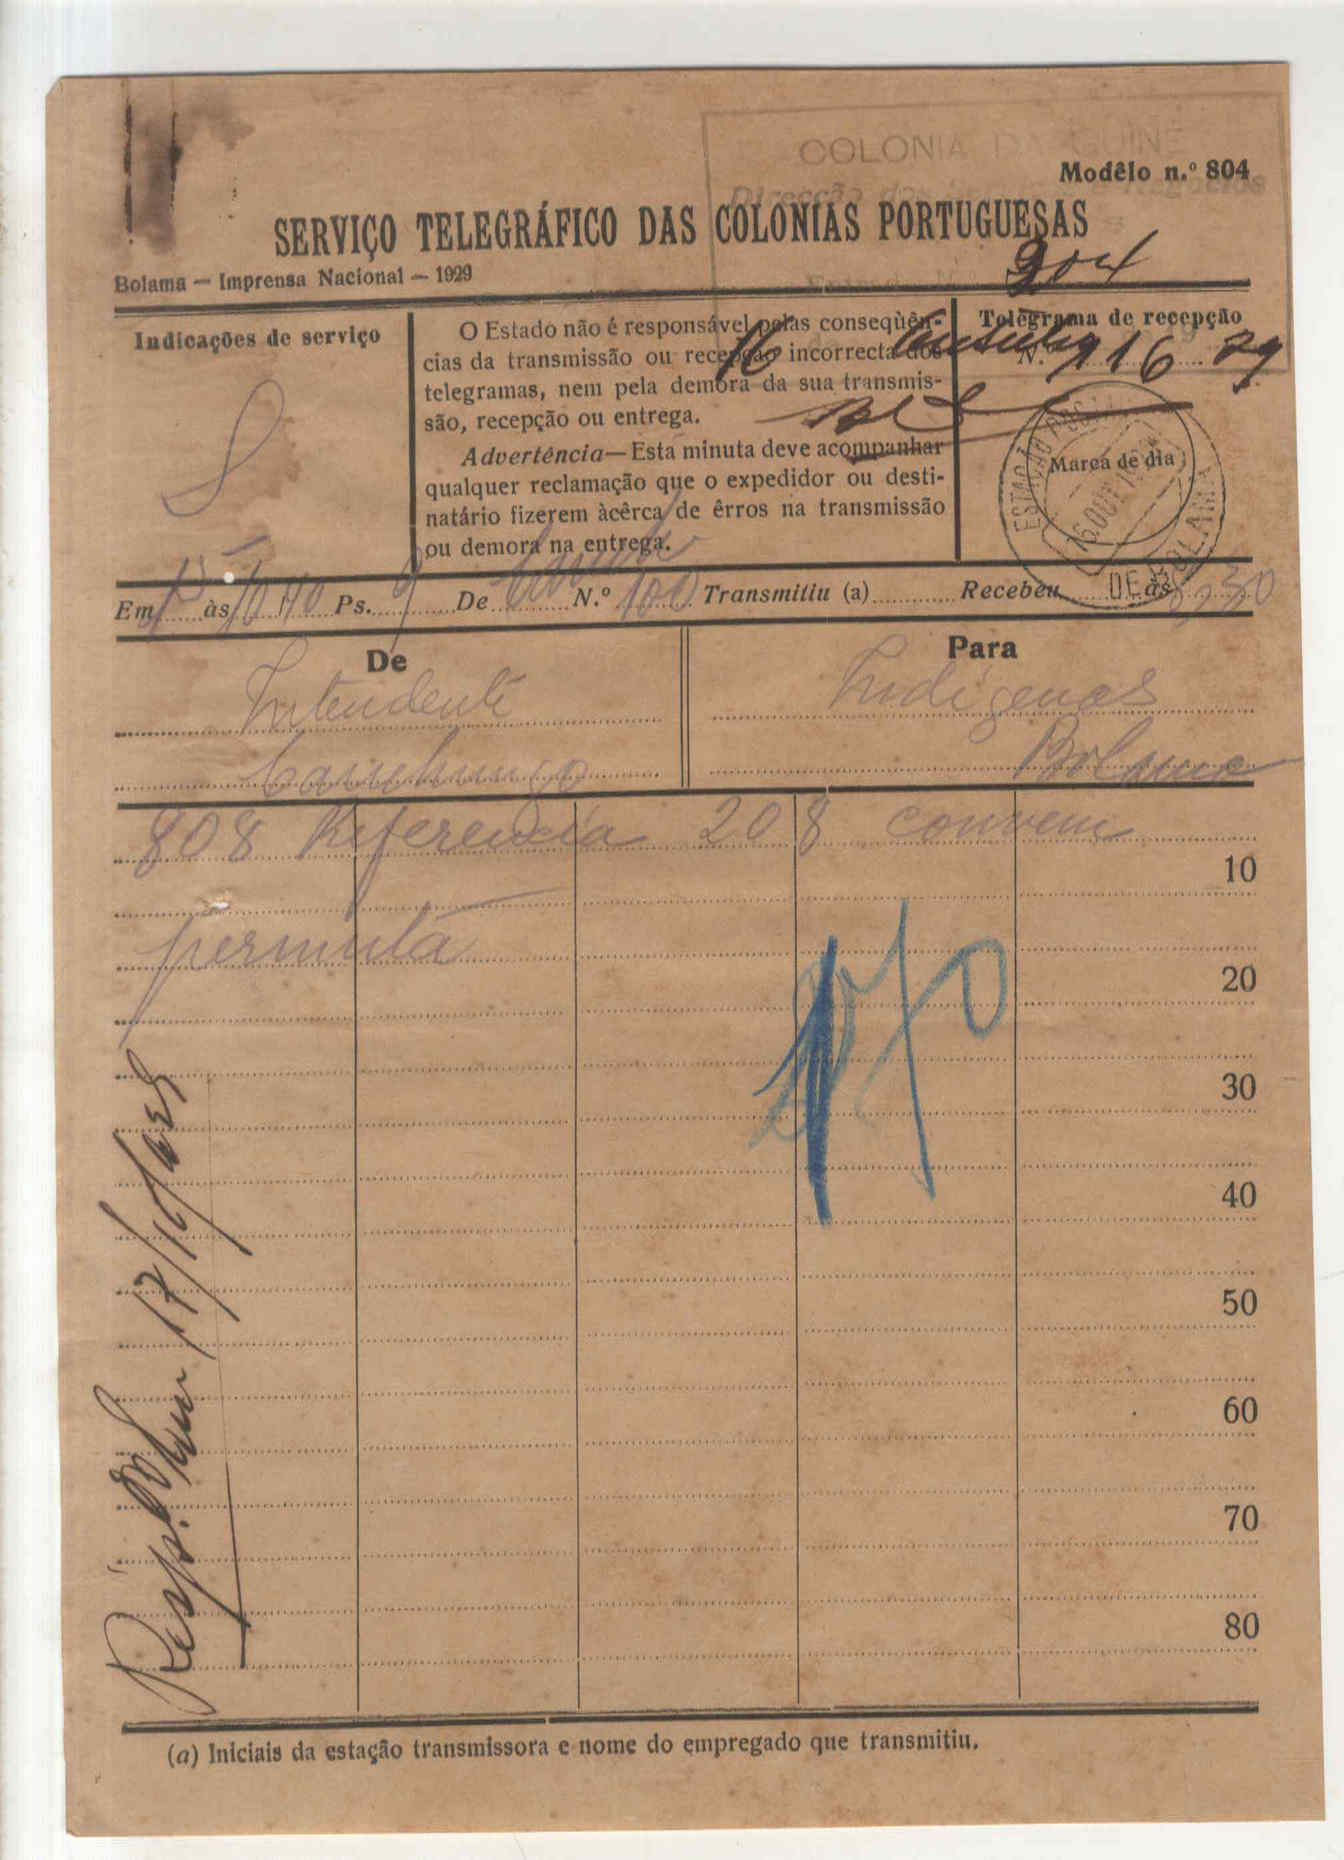 COLONIA DA GUINÉ
Modêlo n.º 804
Direcção dos Negocios
SERVIÇO TELEGRÁFICO DAS COLONIAS PORTUGUESAS
Bolama — Imprensa Nacional — 1929
204
Indicações de serviço
S
O Estado não é responsável pelas conseqüên-
cias da transmissão ou recepção incorrecta dos
telegramas, nem pela demora da sua transmis-
são, recepção ou entrega.
Advertência—Esta minuta deve acompanhar
qualquer reclamação que o expedidor ou desti-
natário fizerem àcêrca de êrros na transmissão
ou demora na entrega.
Telegrama de recepção
N.º
16 29
Marca de dia
ESTAÇÃO DE BOLAMA
Em 15 às 10 40 Ps. 9 De N.º 100 Transmitiu (a) Recebeu às
De
Intendente
Canchungo
Para
Indigenas
Bolama
808 Referencia 208 convem
permuta
10
20
30
40
50
60
70
80
170
Resp. 17/10/929
(a) Iniciais da estação transmissora e nome do empregado que transmitiu.